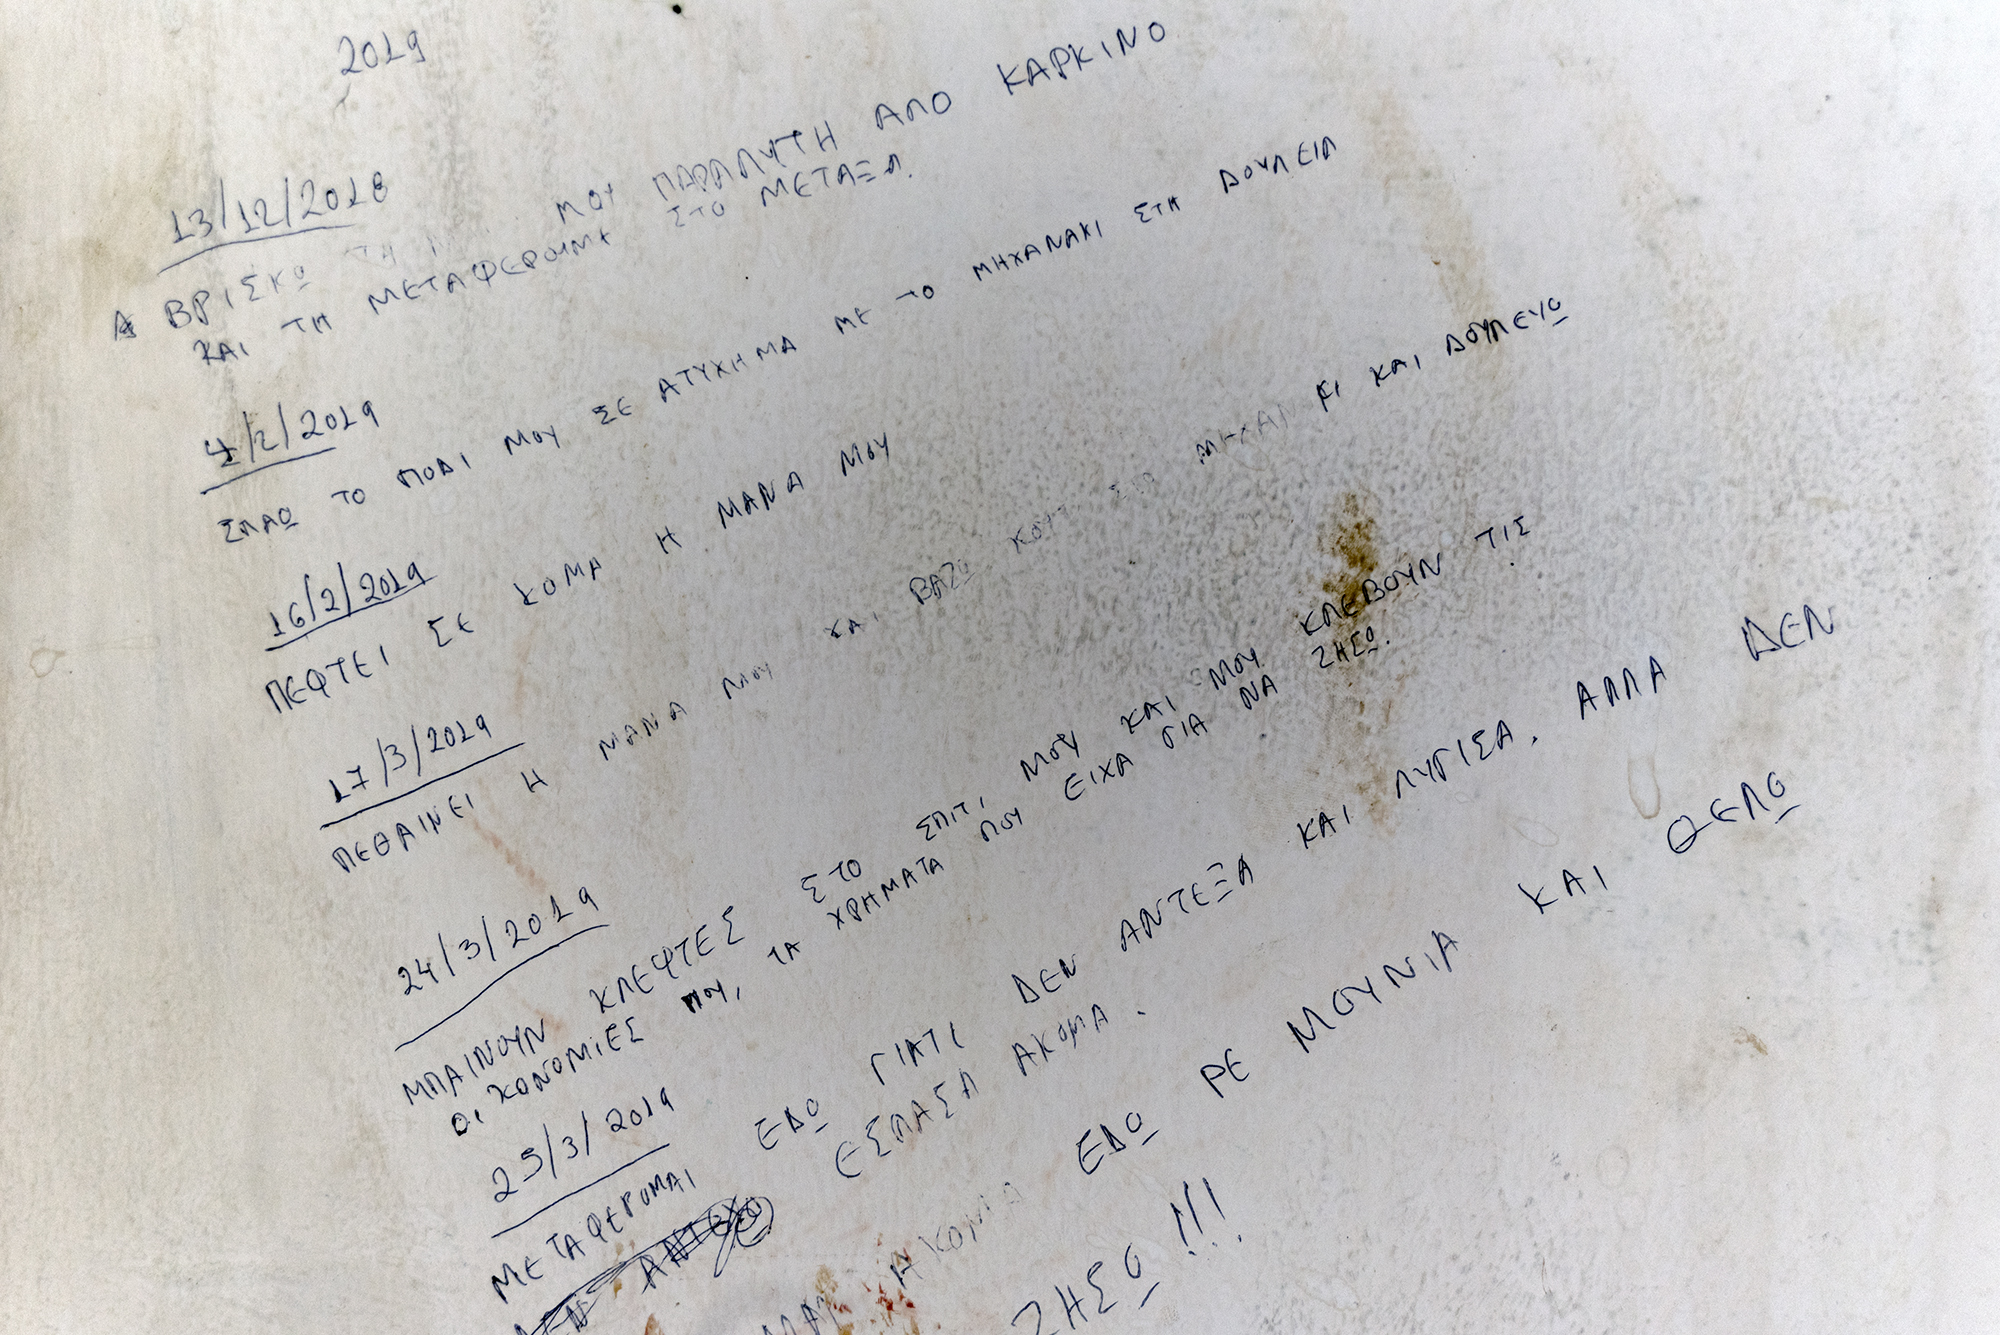 2019
13/12/2018
ΒΡΙΣΚΩ ΤΗ ΜΟΥ ΠΑΡΑΛΥΤΗ ΑΠΟ ΚΑΡΚΙΝΟ
ΚΑΙ ΤΗ ΜΕΤΑΦΕΡΟΥΜΕ ΣΤΟ ΜΕΤΑΞΑ.
4/2/2019
ΣΠΑΩ ΤΟ ΠΟΔΙ ΜΟΥ ΣΕ ΑΤΥΧΗΜΑ ΜΕ ΤΟ ΜΗΧΑΝΑΚΙ ΣΤΗ ΔΟΥΛΕΙΑ
16/2/2019
ΠΕΦΤΕΙ ΣΕ ΚΟΜΑ Η ΜΑΝΑ ΜΟΥ
17/3/2019
ΠΕΘΑΙΝΕΙ Η ΜΑΝΑ ΜΟΥ ΚΑΙ ΒΑΖΩ ΚΑΙ ΔΟΥΛΕΥΩ
24/3/2019
ΜΠΑΙΝΟΥΝ ΚΛΕΦΤΕΣ ΣΤΟ ΣΠΙΤΙ ΜΟΥ ΚΑΙ ΜΟΥ ΚΛΕΒΟΥΝ ΤΙΣ
ΟΙΚΟΝΟΜΙΕΣ ΜΟΥ, ΤΑ ΧΡΗΜΑΤΑ ΠΟΥ ΕΙΧΑ ΓΙΑ ΝΑ ΖΗΣΩ.
25/3/2019
ΜΕΤΑΦΕΡΟΜΑΙ ΕΔΩ ΓΙΑΤΙ ΔΕΝ ΑΝΤΕΞΑ ΚΑΙ ΛΥΓΙΣΑ. ΑΛΛΑ ΔΕΝ
ΕΣΠΑΣΑ ΑΚΟΜΑ.
ΑΚΟΜΑ ΕΔΩ ΡΕ ΜΟΥΝΙΑ ΚΑΙ ΘΕΛΩ
ΖΗΣΩ!!!